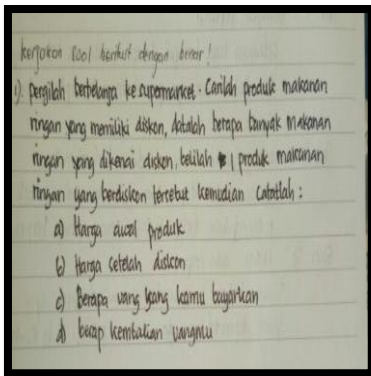 kerjakan soal berikut dengan benar!
1). pergilah berbelanja ke supermarket. Carilah produk makanan
ringan yang memiliki diskon, datalah berapa banyak makanan
ringan yang dikenai diskon, belilah 1 produk makanan
ringan yang berdiskon tersebut kemudian catatlah :
a) Harga awal produk
b) Harga setelah diskon
c) Berapa uang yang kamu bayarkan
d) berap kembalian uangmu